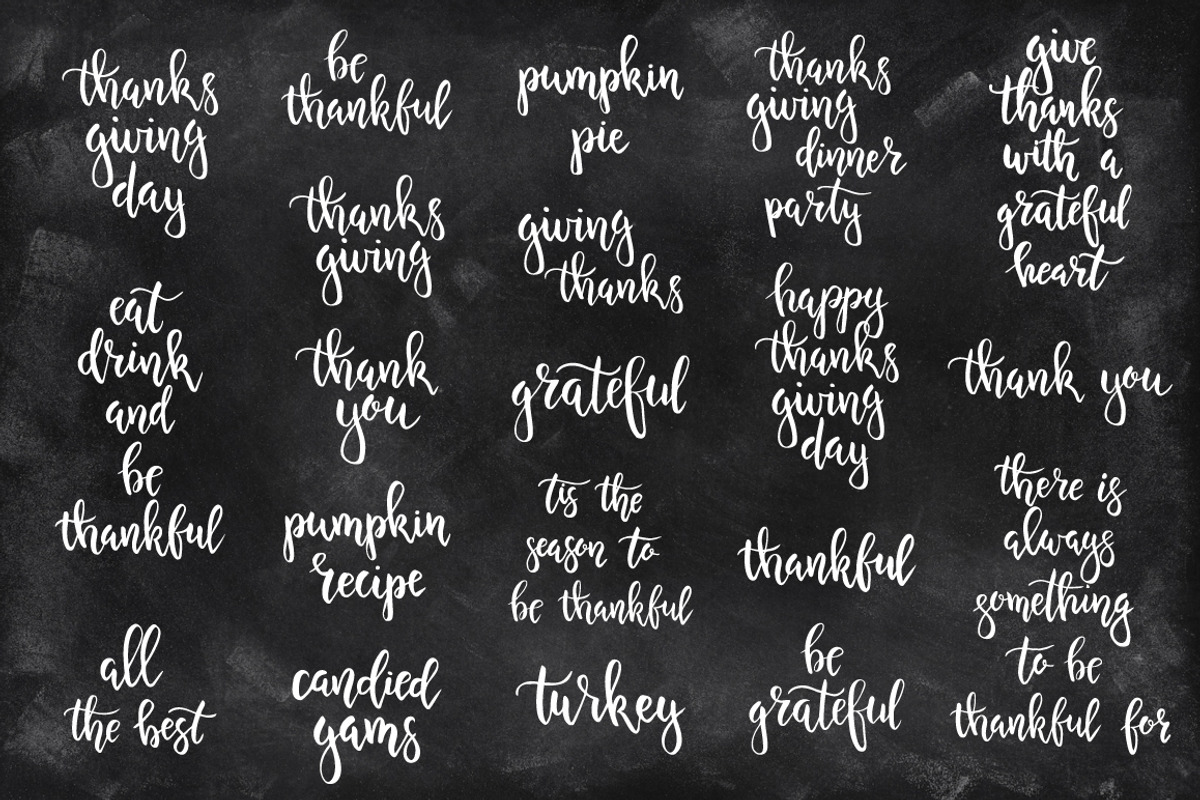 thanks
giving
day
eat
drink
and
be
thankful
all
the best
be
thankful
thanks
giving
thank
you
pumpkin
recipe
candied
yams
pumpkin
pie
giving
thanks
grateful
tis the
season to
be thankful
turkey
thanks
giving
dinner
party
happy
thanks
giving
day
thankful
be
grateful
give
thanks
with a
grateful
heart
thank you
there is
always
something
to be
thankful for